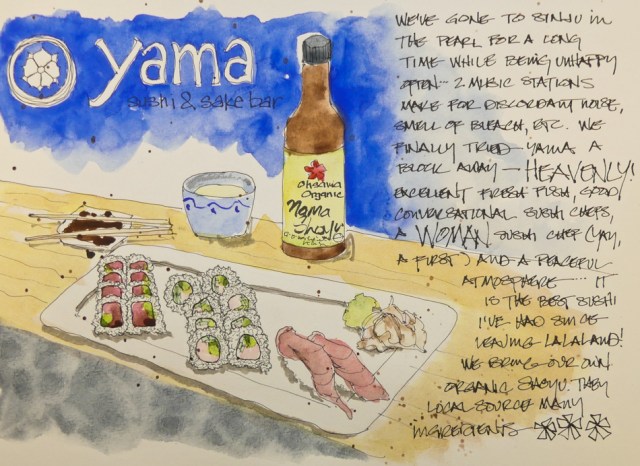 yama
sushi & sake bar
Ohsawa
Organic
Nama
Shoyu
WE'VE GONE TO SINJU in
THE PEARL FOR A LONG
TIME WHILE BEING UNHAPPY
OFTEN... 2 MUSIC STATIONS
MAKE FOR DISCORDANT NOISE,
SMELL OF BLEACH, ETC. WE
FINALLY TRIED YAMA A
BLOCK AWAY — HEAVENLY!
EXCELLENT FRESH FISH, GOOD
CONVERSATIONAL SUSHI CHEFS,
A WOMAN SUSHI CHEF (YAY,
A FIRST) AND A PEACEFUL
ATMOSPHERE.... IT
IS THE BEST SUSHI
I'VE HAD SINCE
LEAVING LALALAND!
WE BRING OUR OWN
ORGANIC SHOYU. THEY
LOCAL SOURCE MANY
INGREDIENTS —